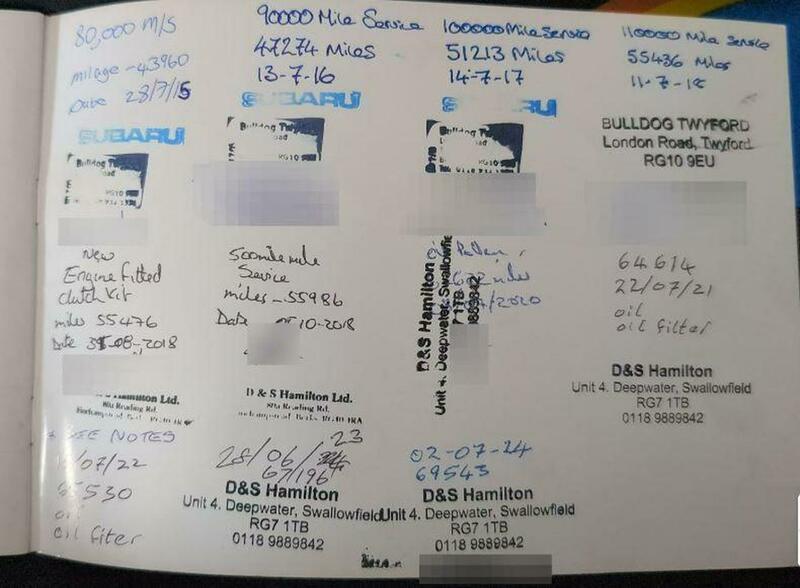 80,000 M/S
milage -43960
Date 28/7/15
SUBARU
Bulldog
90000 Mile Service
47274 Miles
13-7-16
SUBARU
Bulldog
RG10
100000 Mile Service
51213 Miles
14-7-17
SUBARU
Bulldog
110000 Mile Service
55436 Miles
11-7-18
BULLDOG TWYFORD
London Road, Twyford
RG10 9EU
New
Engine fitted
clutch kit
miles 55476
Date 31-08-2018
Hamilton Ltd.
500 mile mile
Service
miles -55986
Date 10-2018
D & S Hamilton Ltd.
80a Reading Rd.
miles
/2020
D&S Hamilton
Unit 4. Deepwater, Swallowfield
RG7 1TB
0118 9889842
64614
22/07/21
oil
oil filter
D&S Hamilton
Unit 4. Deepwater, Swallowfield
RG7 1TB
0118 9889842
SEE NOTES
/07/22
5530
oil
oil filter
23
28/06/
67196
D&S Hamilton
Unit 4. Deepwater, Swallowfield
RG7 1TB
0118 9889842
02-07-24
69543
D&S Hamilton
Unit 4. Deepwater, Swallowfield
RG7 1TB
0118 9889842